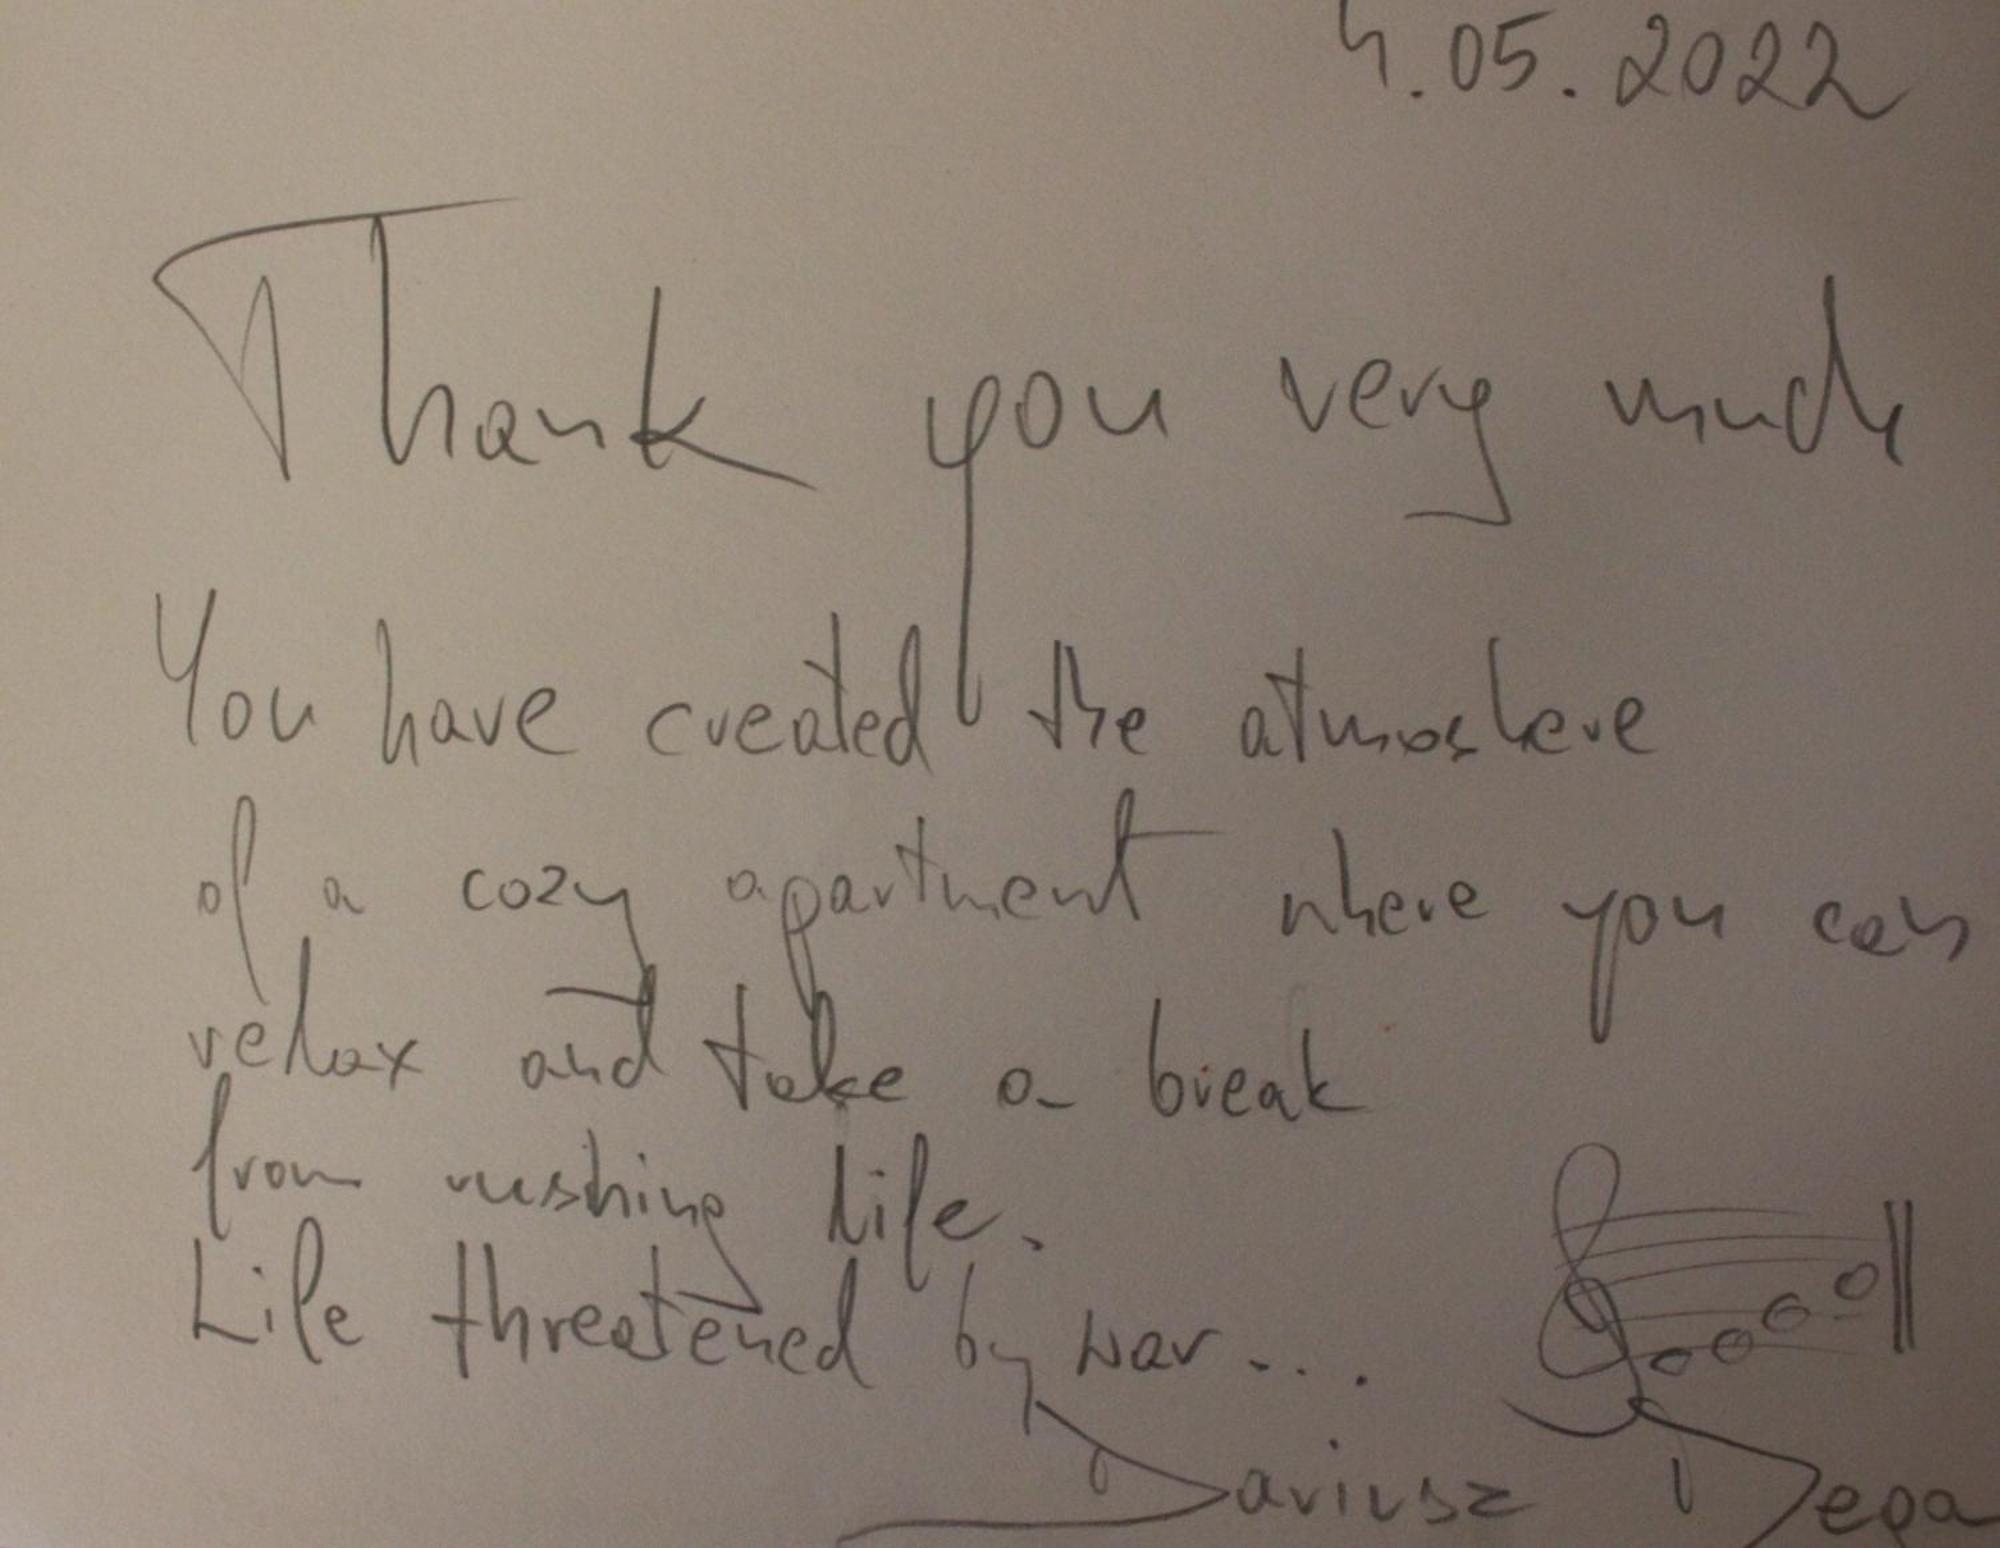 4.05.2022
Thank you very much
You have created the atmoshere
of a cozy apartment where you can
relax and take a break
from rushing life.
Life threatened by war...
Dariusz